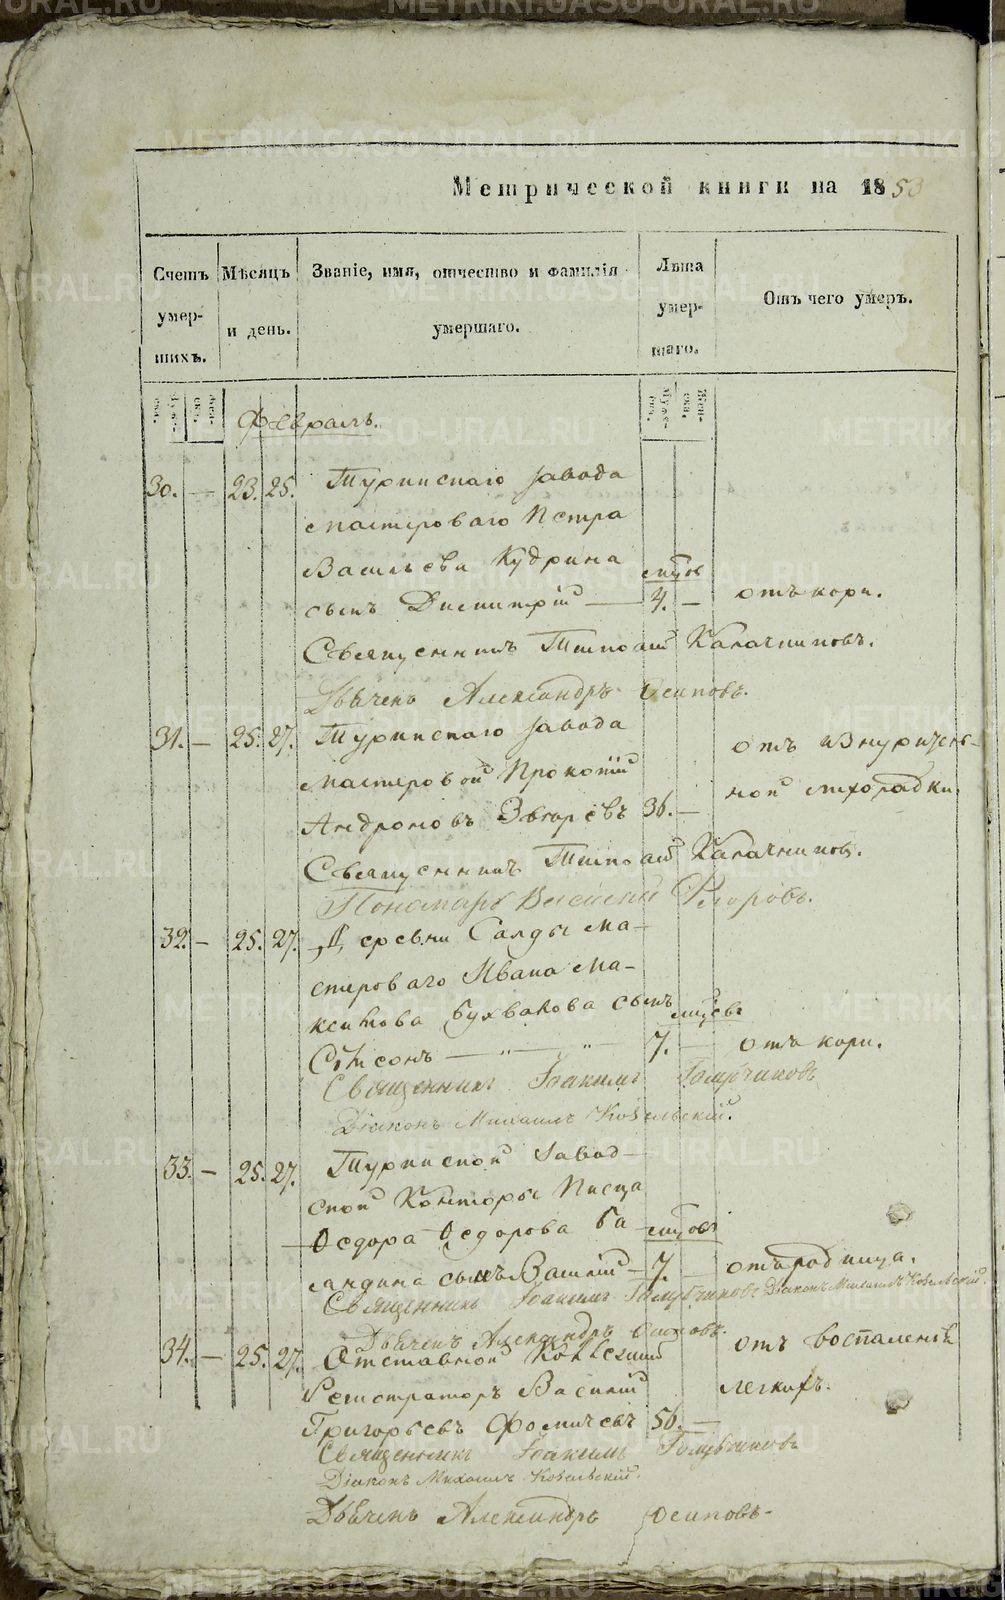 Метрической книги на 1853
Счетъ умер-шихъ.
Мѣсяцъ и день.
Званіе, имя, отчество и фамилія умершаго.
Лѣта умер-шаго.
Отъ чего умеръ.
Февраль.
30. — 23. 25. Туринскаго завода
мастероваго Петра
Васильева Кудрина
сынъ Димитрій — 4. — отъ кори.
Священникъ Тимоѳей Калачниковъ.
Дьячекъ Александръ Осиповъ.
31. — 25. 27. Туринскаго завода
мастеровой Прокопій
отъ изнуритель-
ной лихорадки.
Андроновъ 36. —
Священникъ Тимоѳей Калачниковъ.
Пономарь Ѳедоровъ.
32. — 25. 27. Деревни Салды ма-
стероваго Ивана Ма-
ксимова сынъ
7. — отъ кори.
Священникъ Іоакимъ
Діаконъ Михаилъ
33. — 25. 27. Туринской Завод-
ской Конторы Писца
Ѳедора Ѳедорова Ба-
ландина сынъ Василій — 7. — отъ родимца.
Священникъ Іоакимъ Діаконъ Михаилъ
Дьячекъ Александръ Осиповъ.
34. — 25. 27. Отставной Колежскій
отъ воспаленія
Регистраторъ Василій
легкихъ.
Григорьевъ Фомичевъ 56. —
Священникъ Іоакимъ
Діаконъ Михаилъ
Дьячекъ Александръ Осиповъ.
METRIKI.GASO-URAL.RU